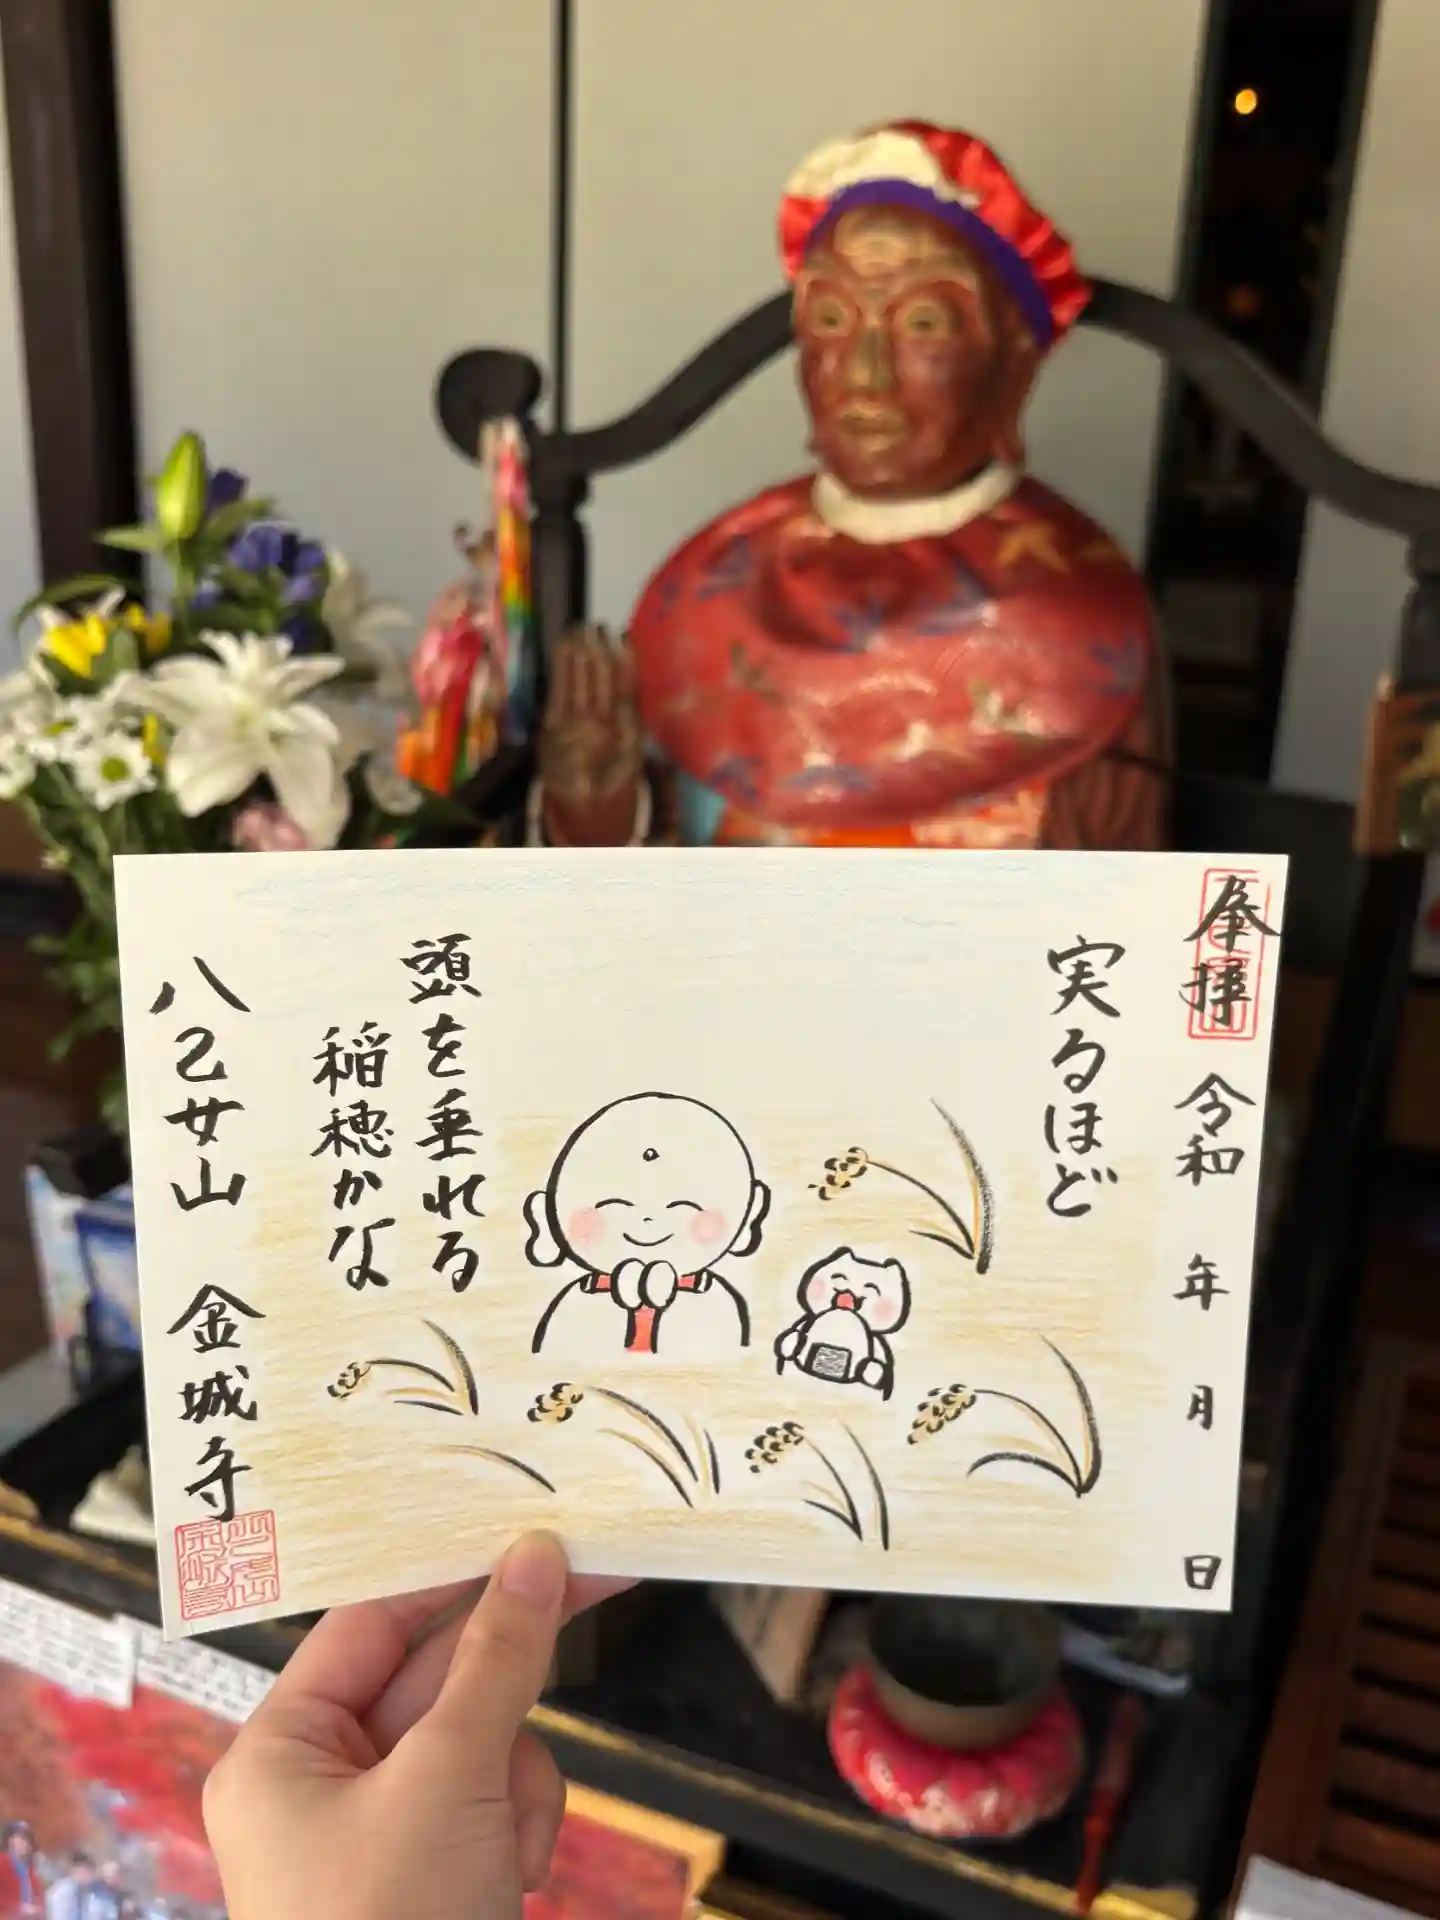 奉拝
令和 年 月 日
実るほど
頭を垂れる
稲穂かな
八乙女山 金城寺